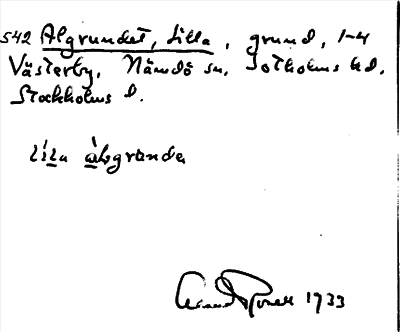 542 Algrundet, Lilla, grund, 1-4
Västerby, Nämdö sn, Sotholms hd,
Stockholms l.
lìlla àlsgrunda
1933